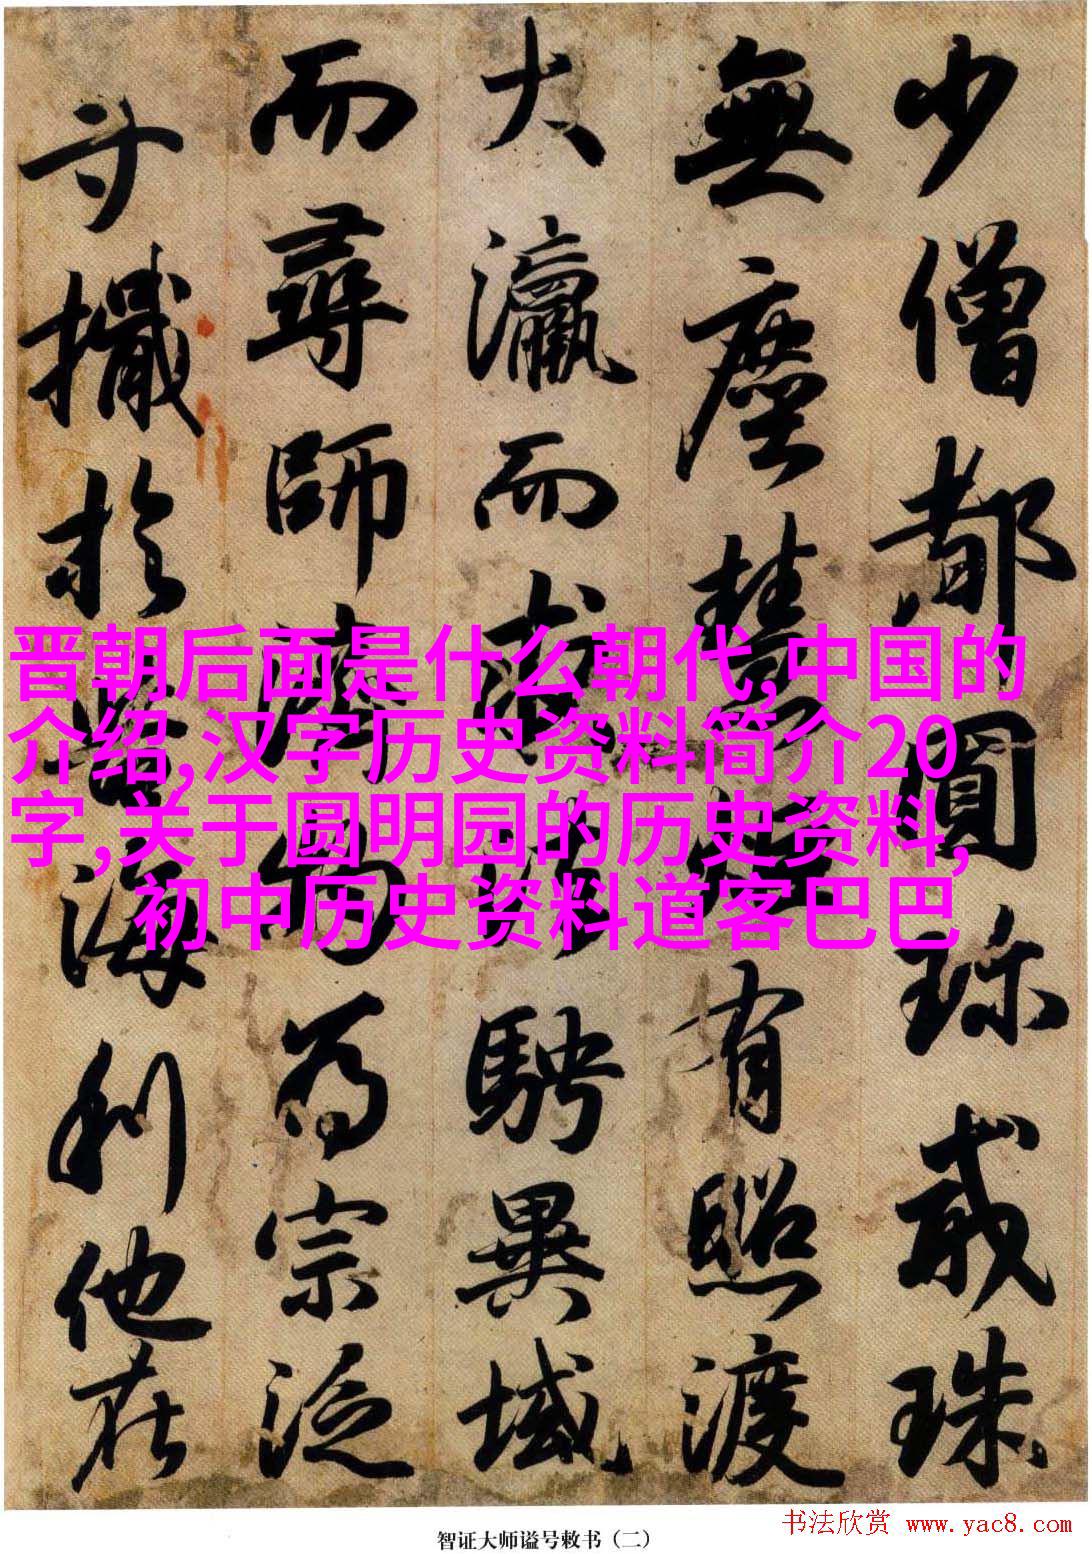 少僧都圓珍戒珠
無塵慧有照渡
大瀛而法騁異域
而尋師物為宗泛
寸檝於海利他在
晋朝后面是什么朝代,中国的
介绍,汉字历史资料简介20
字,关于圆明园的历史资料,
初中历史资料道客巴巴
书法欣赏 www.yac8.com
智证大师谥号敕书（二）